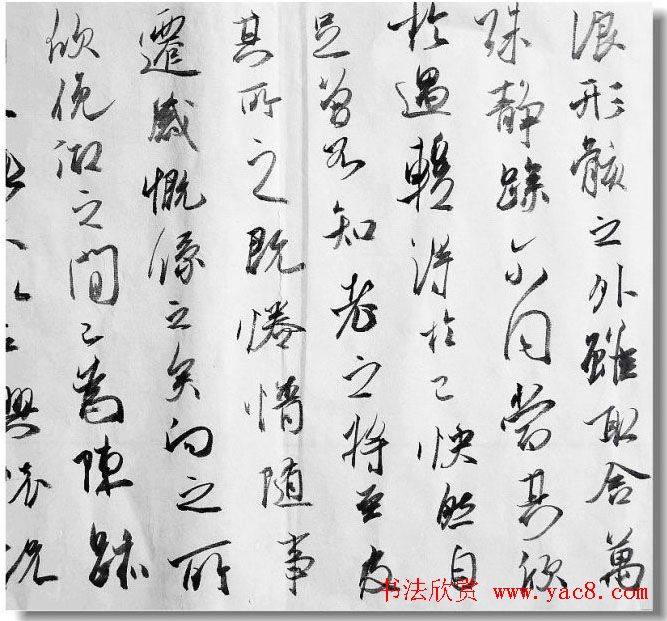 浪形骸之外雖取舍萬
殊静躁不同當其欣
於遇輒得於己快然自
足曾不知老之將至及
其所之既惓情随事
遷感慨係之矣向之所
欣俛仰之間已為陳跡
興懷况
书法欣赏 www.yac8.com